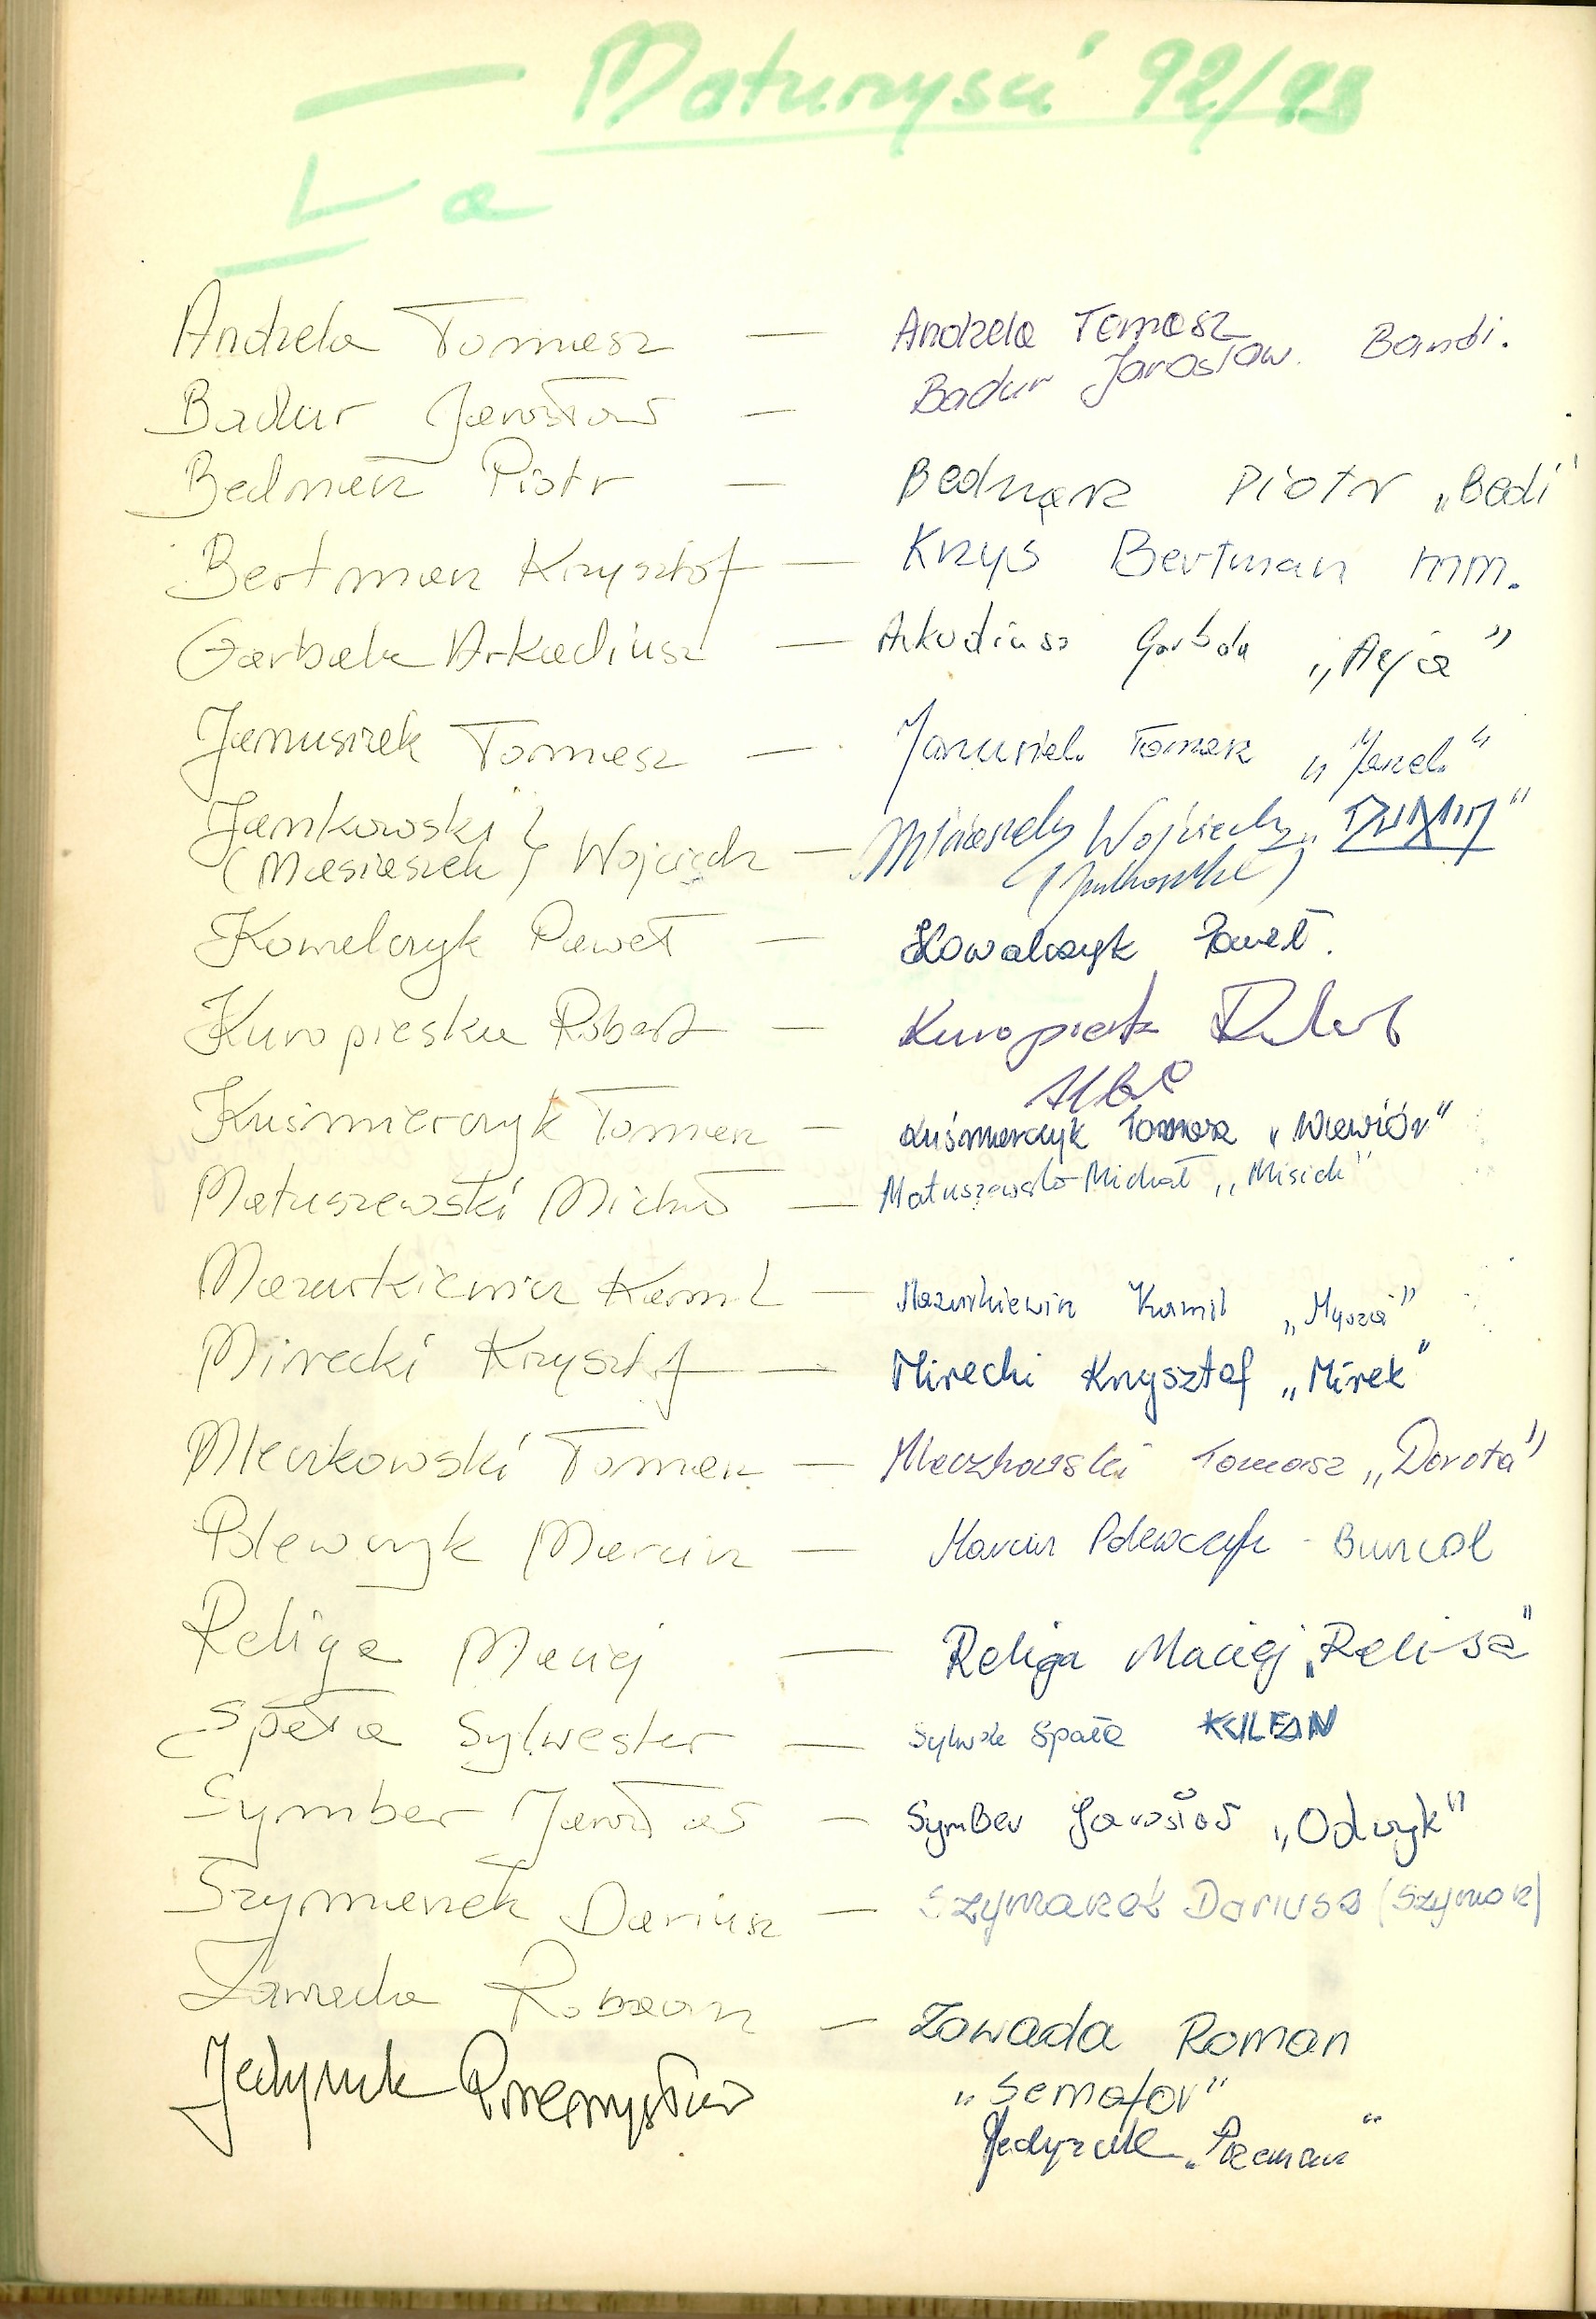 Maturzyści 92/93
V a
Andzela Tomasz — Andzela Tomasz
Badur Jarosław — Badur Jarosław. Bandi.
Bednarz Piotr — Bednarz Piotr „Bedi"
Bertman Krzysztof — Krzyś Bertman mm.
Garbala Arkadiusz — Arkadiusz
Janusiek Tomasz — Janusiek Tomek
Jankowski
(Masiaszek) Wojciech — Wojciech
Kowalczyk Paweł — Kowalczyk Paweł.
Kuropieska Robert — Kuropieska Robert
Kuśmierczyk Tomasz — Kuśmierczyk Tomasz „Wiewiór"
Matuszewski Michał — Matuszewski Michał „Misiek"
Mazurkiewicz Kamil — Mazurkiewicz Kamil „Mysza"
Mirecki Krzysztof — Mirecki Krzysztof „Mirek"
Mleczkowski Tomasz — Mleczkowski Tomasz „Dorota"
Polewczyk Marcin — Marcin Polewczyk - Buncol
Religa Maciej — Religa Maciej „Relisa"
Spała Sylwester — Spała
Symber Jarosław — Symber Jarosław „Odczyk"
Szymanek Dariusz — Szymanek Dariusz (Szymon)
Zawada Roman — Zawada Roman
„Semafor"
Jedynak Przemysław
Jedynak